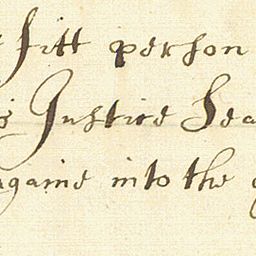 fitt person
Justice Sea
againe into the